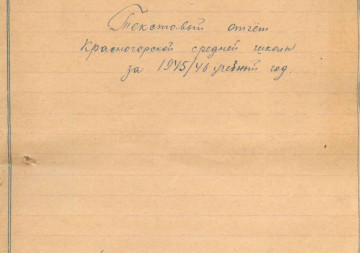 Текстовый отчёт
Красногорской средней школы
за 1945/46 учебный год.